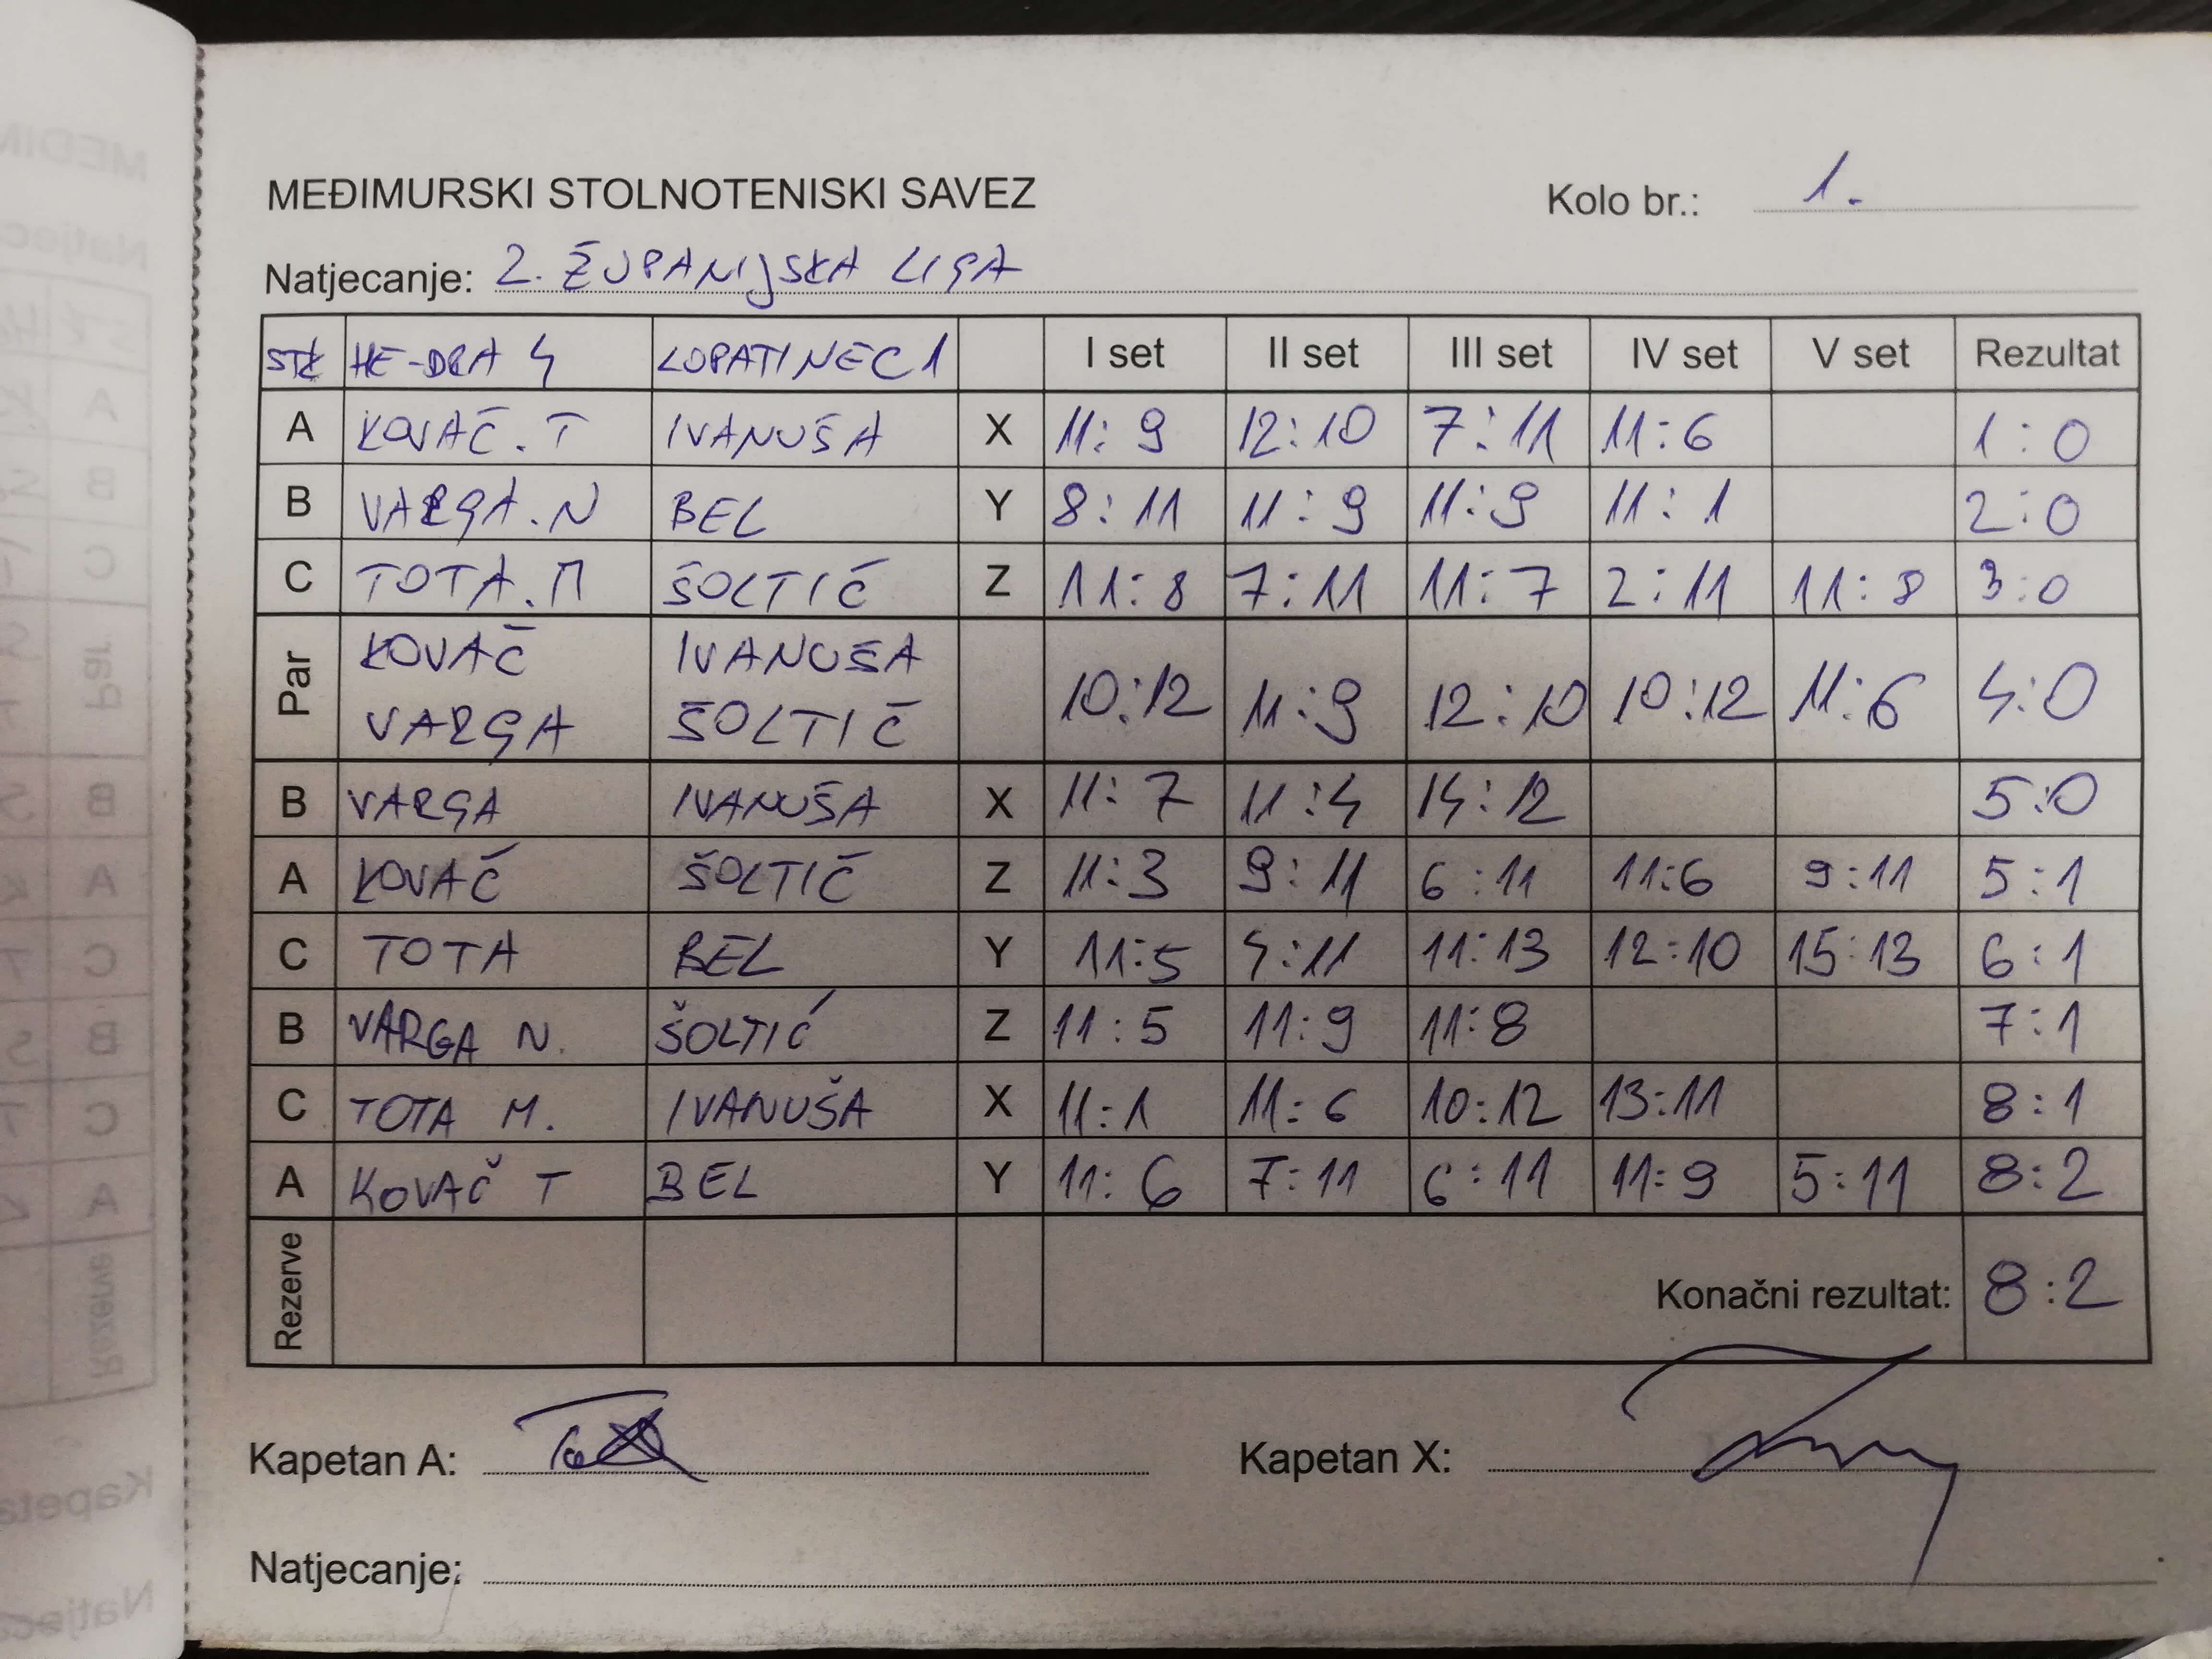 MEĐIMURSKI STOLNOTENISKI SAVEZ Kolo br.: 1.
Natjecanje: 2. ŽUPANIJSKA LIGA
STK HE-DRA 4 LOPATINEC 1 I set II set III set IV set V set Rezultat
A KOVAČ. T IVANUŠA X 11:9 12:10 7:11 11:6 1:0
B VARGA. N BEL Y 8:11 11:9 11:9 11:1 2:0
C TOTA. M ŠOLTIĆ Z 11:8 7:11 11:7 2:11 11:8 3:0
Par KOVAČ IVANUŠA
VARGA ŠOLTIĆ 10:12 11:9 12:10 10:12 11:6 4:0
B VARGA IVANUŠA X 11:7 11:4 14:12 5:0
A KOVAČ ŠOLTIĆ Z 11:3 9:11 6:11 11:6 9:11 5:1
C TOTA BEL Y 11:5 4:11 11:13 12:10 15:13 6:1
B VARGA N. ŠOLTIĆ Z 11:5 11:9 11:8 7:1
C TOTA M. IVANUŠA X 11:1 11:6 10:12 13:11 8:1
A KOVAČ T BEL Y 11:6 7:11 6:11 11:9 5:11 8:2
Rezerve Konačni rezultat: 8:2
Kapetan A: Kapetan X:
Natjecanje: